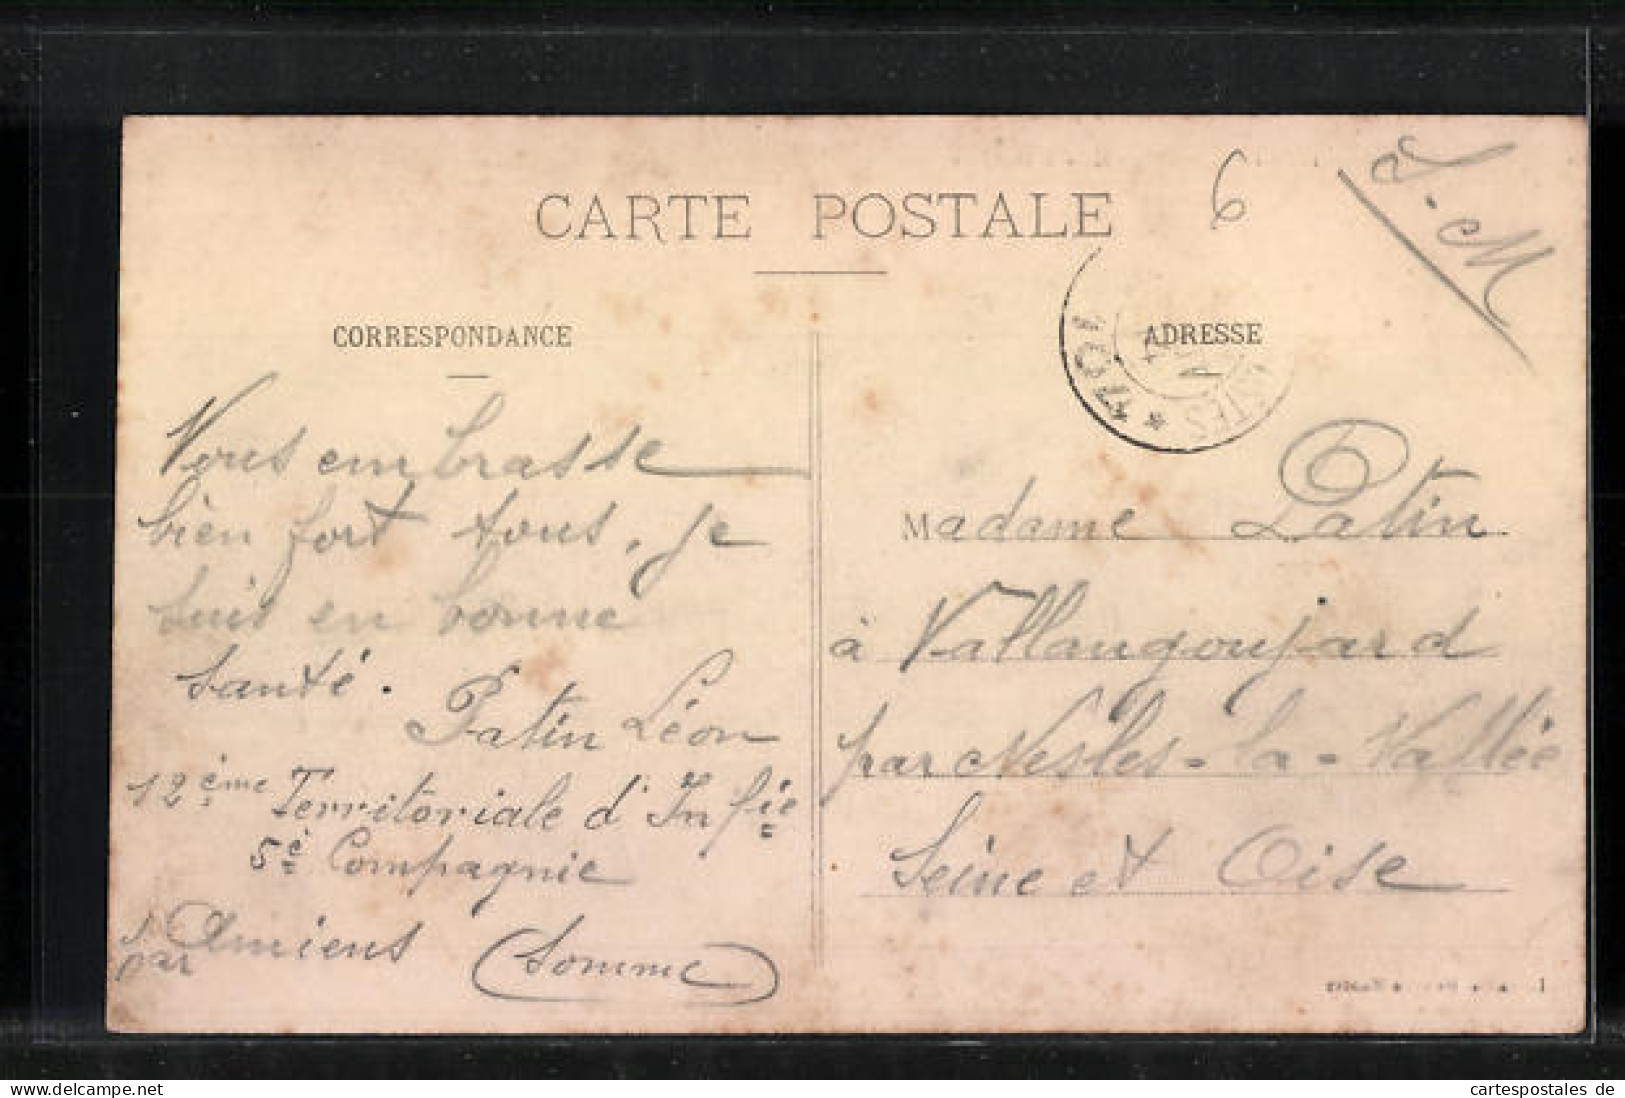 CARTE POSTALE
6
CORRESPONDANCE
ADRESSE
Vous embrasse
bien fort tous, je
suis en bonne
santé.
Patin Léon
12ème Territoriale d'Infie
5e Compagnie
par Amiens (Somme)
Madame Patin
à Vallangoujard
par Nesles-la-Vallée
Seine et Oise
cartespostales de